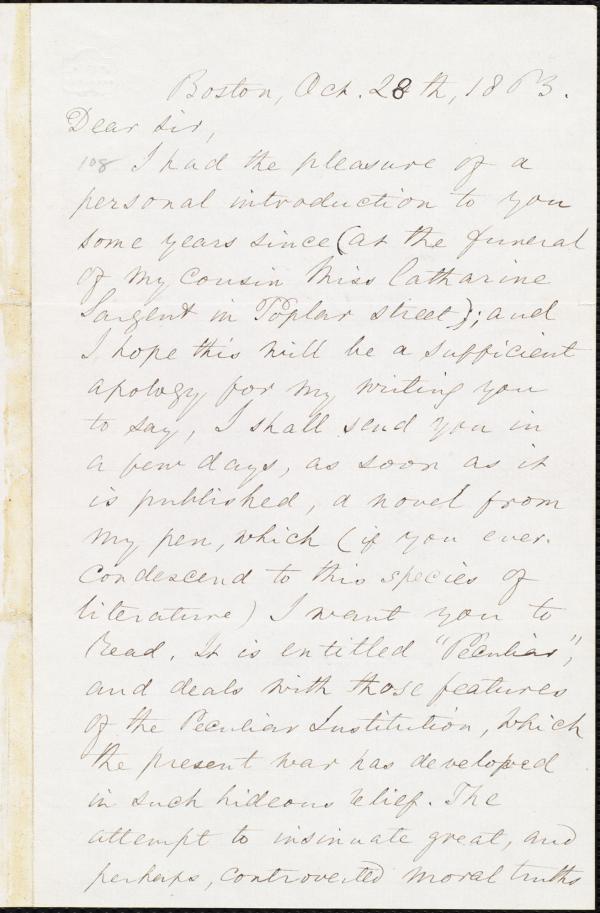 Boston, Oct. 28th, 1863.
Dear Sir,
108 I had the pleasure of a
personal introduction to you
some years since (at the funeral
of my cousin Miss Catharine
Sargent in Poplar street); and
I hope this will be a sufficient
apology for my writing you
to say, I shall send you in
a few days, as soon as it
is published, a novel from
my pen, which (if you ever
condescend to this species of
literature) I want you to
read. It is entitled "Peculiar",
and deals with those features
of the Peculiar Institution, which
the present war has developed
in such hideous relief. The
attempt to insinuate great, and
perhaps, controverted moral truths